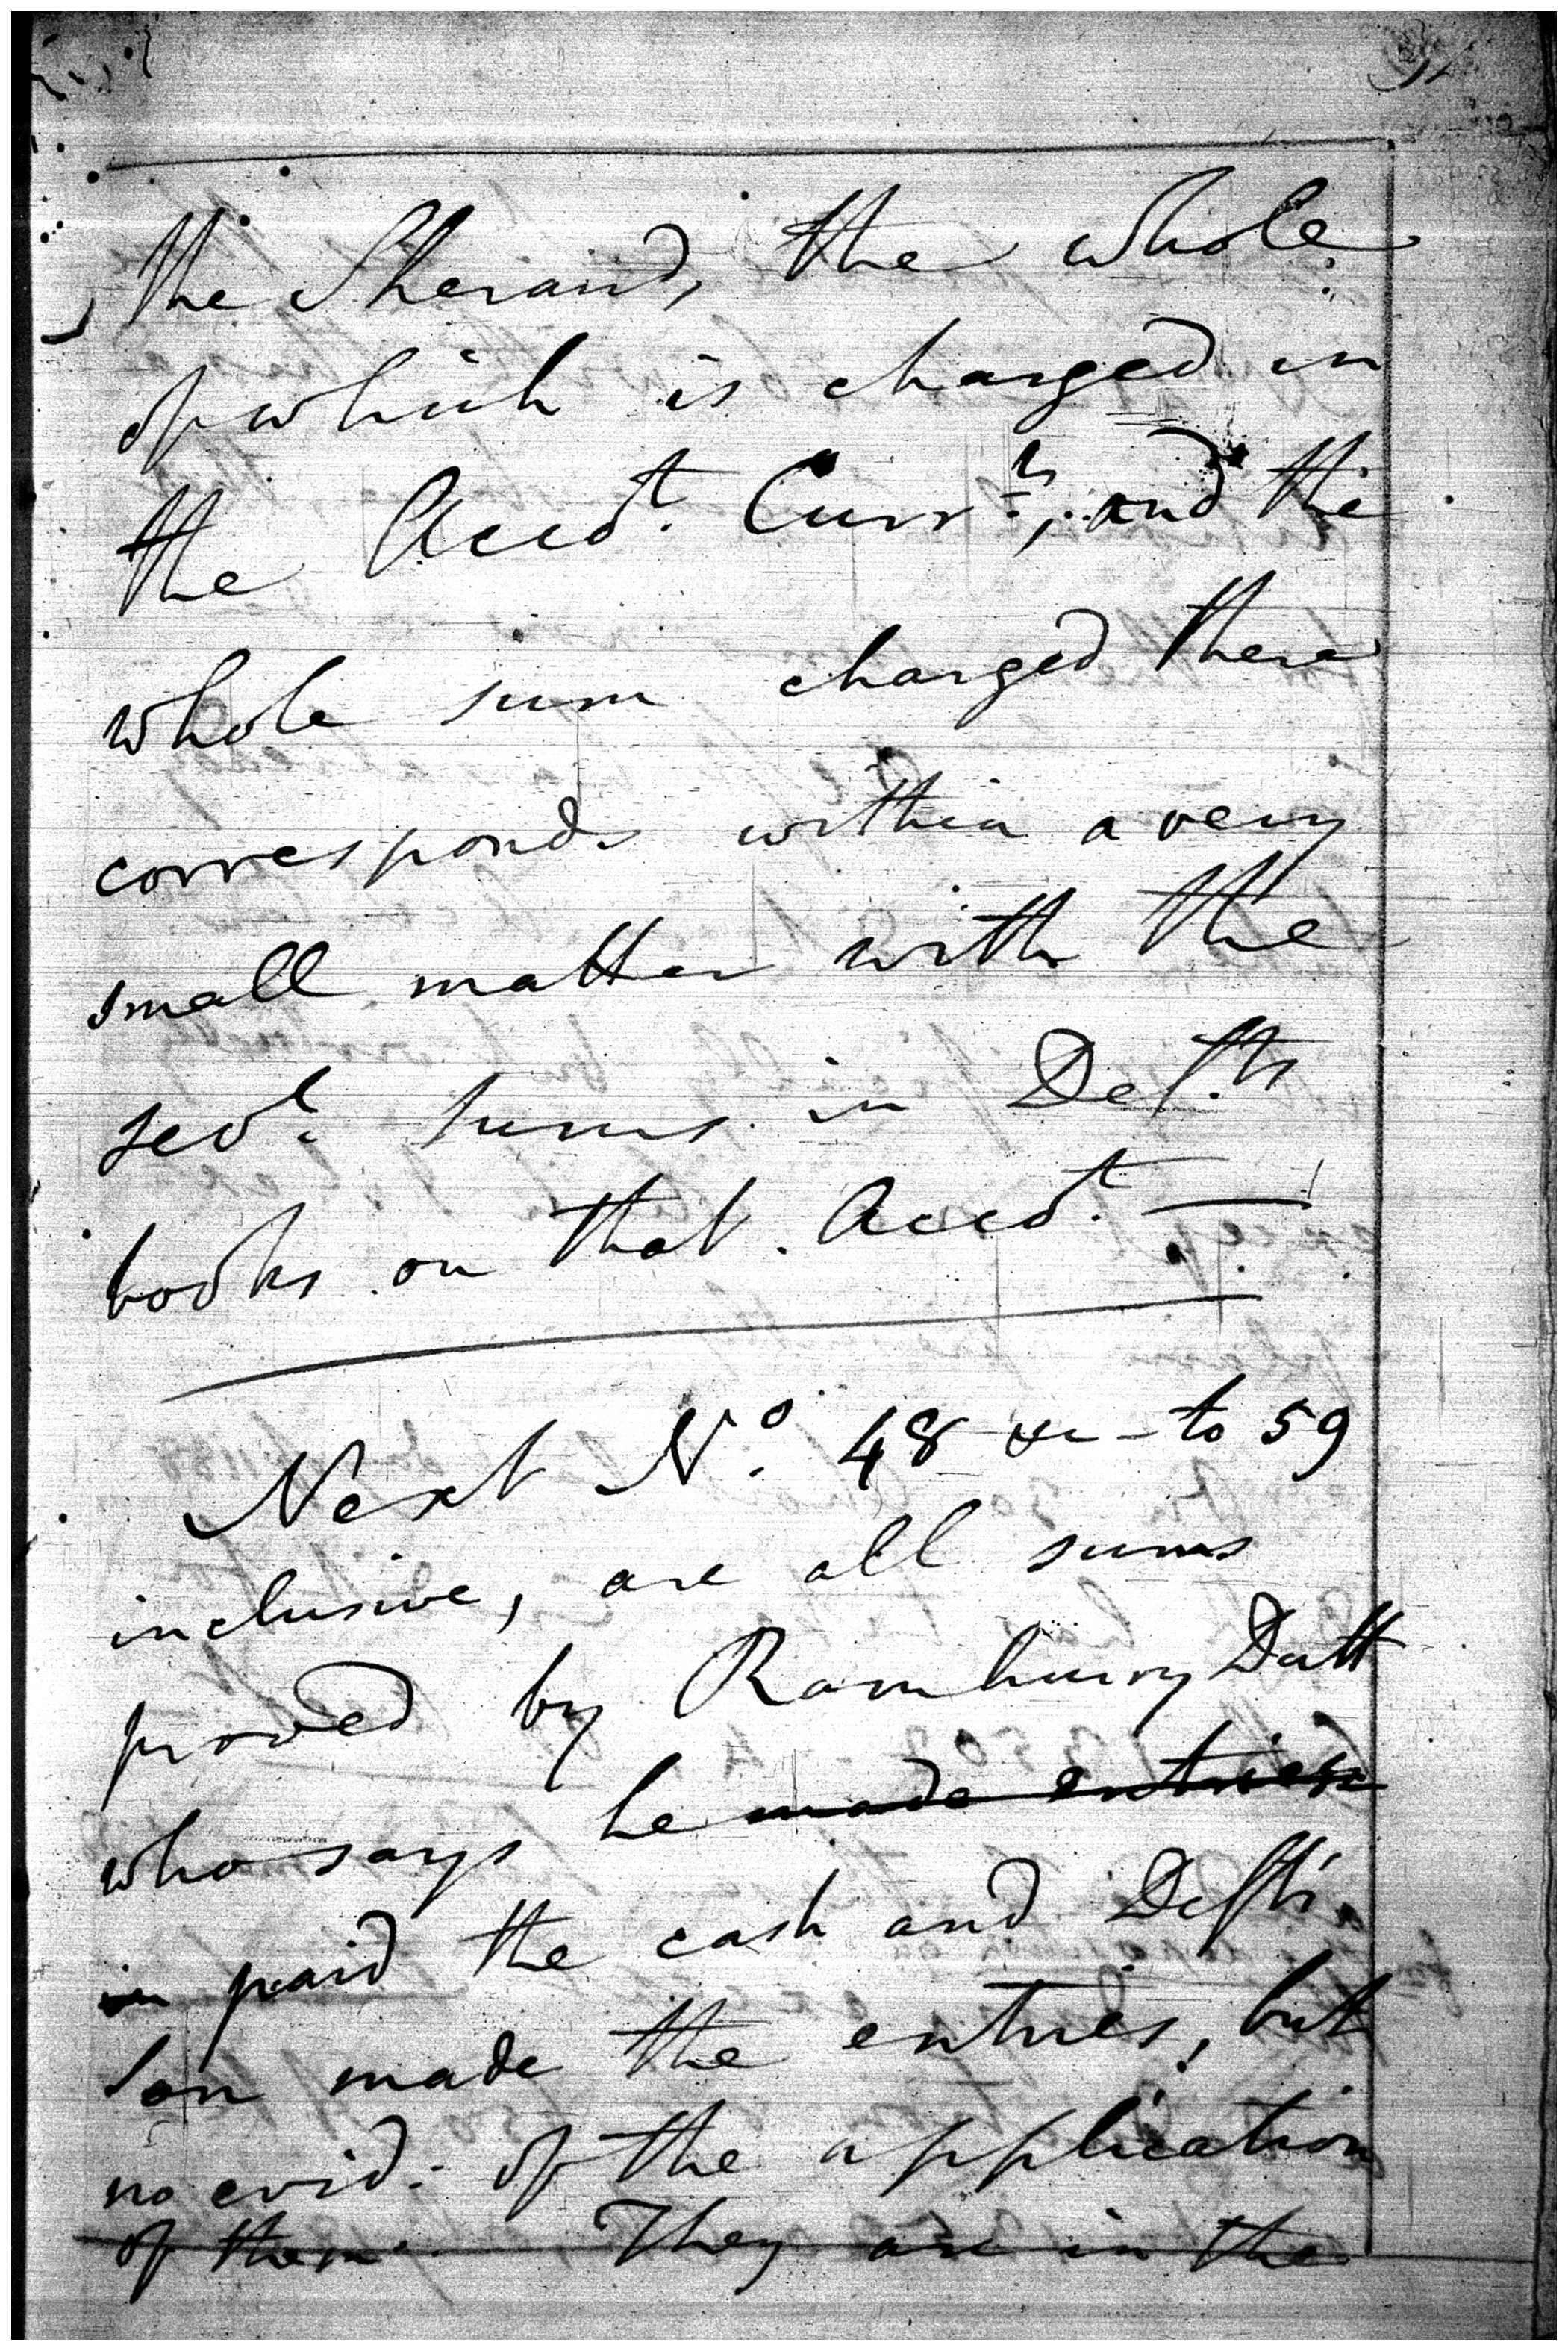 the Sherand, the whole
of which is charged in
the Accot. Currt, and the
whole sum charged there
corresponds within a very
small matter with the
sevl sums in Defts
books on that Accot. —
Next No. 48 &c - to 59
inclusive, are all sums
proved by Ramhurry Dutt
who says he made entries
in paid the cash and Defts
son made the entries, but
no evid: of the application
of them. They are in the